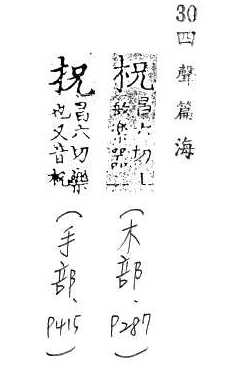 30四聲篇海
柷
昌六切丨
敔樂器
(木部、P287)
昌六切樂
也又音
(手部、P415)